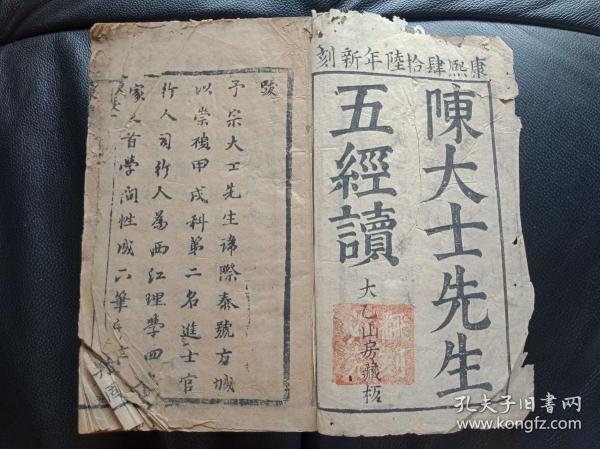 康熙肆拾陸年新刻
陳大士先生
五經讀
大乙山房藏板
跋
予宗大士先生諱際泰號方城
以崇禎甲戌科第二名進士官
行人司行人為西江理學四
家之首學問性成六筆
孔夫子旧书网
www.kongfz.com